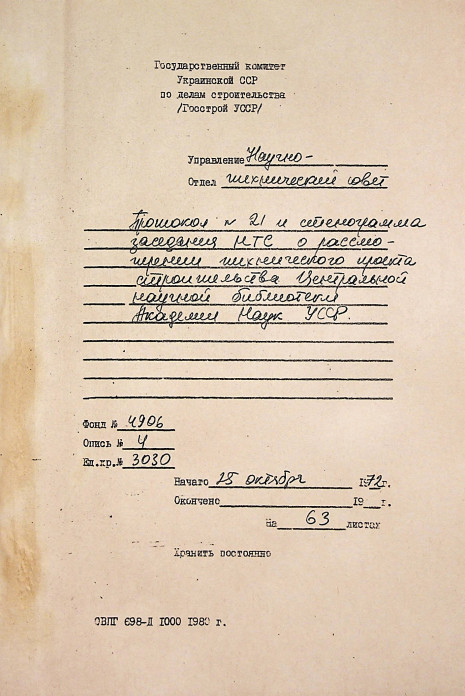 Государственный комитет
Украинской ССР
по делам строительства
/Госстрой УССР/
Управление Научно-
Отдел технический совет
Протокол № 21 и стенограмма
заседания НТС о рассмо-
трении технического проекта
строительства Центральной
научной библиотеки
Академии Наук УССР.
Фонд № 4906
Опись № 4
Ед.хр.№ 3030
Начато 25 октября 1972г.
Окончено 19 г.
На 63 листах
Хранить постоянно
СВПГ 698-Д 1000 1980 г.